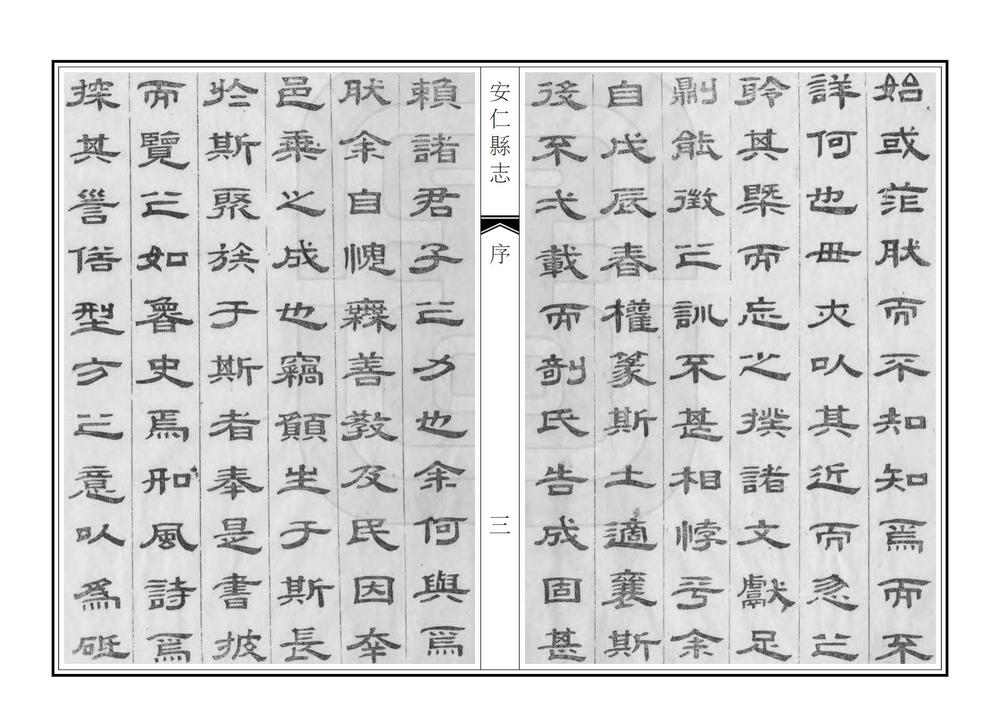 始或茫肰而不知知焉而不
詳何也毋夫以其近而忽之
聆其槩而忘之撲諸文獻足
則能徵之訓不甚相悖乎余
自戊辰春權篆斯土適襄斯
後不弍載而剞氏告成固甚
安仁縣志
序
三
賴諸君子之力也余何與焉
肰余自愧無善教及民因夲
邑乘之成也竊願生于斯長
於斯聚族于斯者奉是書披
而覽之如魯史焉如風詩焉
探其善俗型方之意以為砥